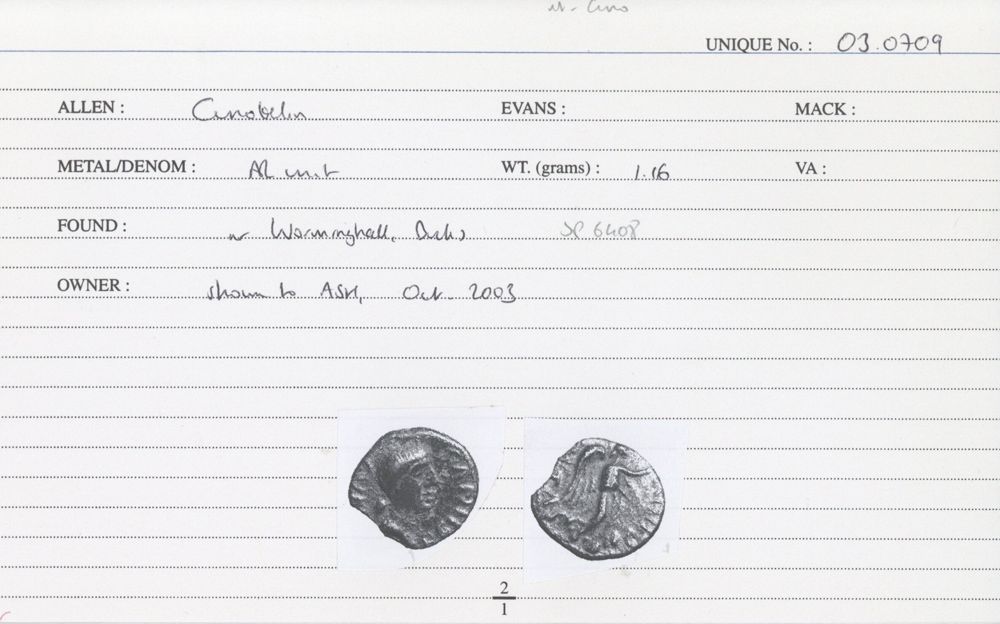 UNIQUE No. : 03.0709
ALLEN : Cunobelin EVANS : MACK :
METAL/DENOM : AR unit WT. (grams) : 1.16 VA :
FOUND : nr Worminghall, Bucks SP 6408
OWNER : shown to ASH, Oct. 2003
2
1